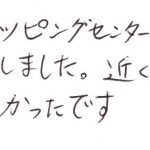 ッピングセンター
しました。近く
かったです